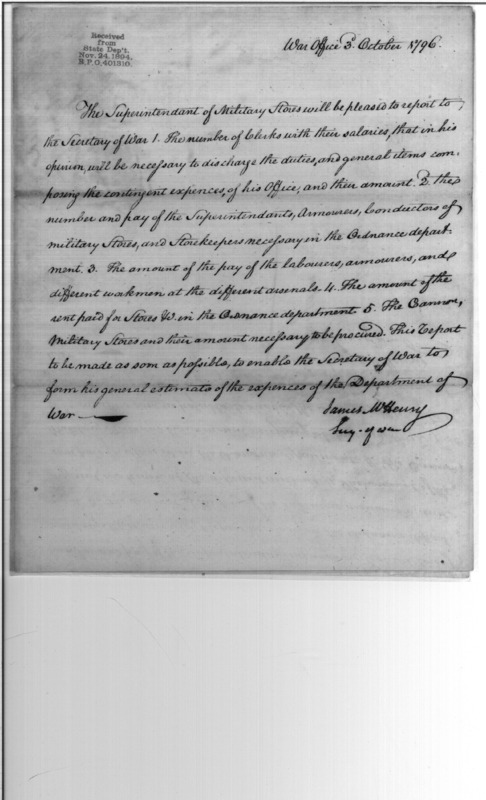 Received
from
State Dep't.
Nov. 24, 1894,
R.P.O. 401310.
War Office 3d. October 1796.
The Superintendant of Military Stores will be pleased to report to
the Secretary of War 1. The number of Clerks with their salaries, that in his
opinion, will be necessary to discharge the duties, and general items com-
posing the contingent expences, of his Office; and their amount. 2. the
number and pay of the Superintendants, Armourers, Conductors of
military Stores, and Storekeepers necessary in the Ordnance depart-
ment. 3. The amount of the pay of the labourers, armourers, and
different workmen at the different arsenals. 4. The amount of the
rent paid for Stores &c. in the Ordnance department. 5. The Cannon,
Military Stores and their amount necessary to be procured. This Report
to be made as soon as possible, to enable the Secretary of War to
form his general estimate of the expences of the Department of
War
James McHenry
Secy. of war